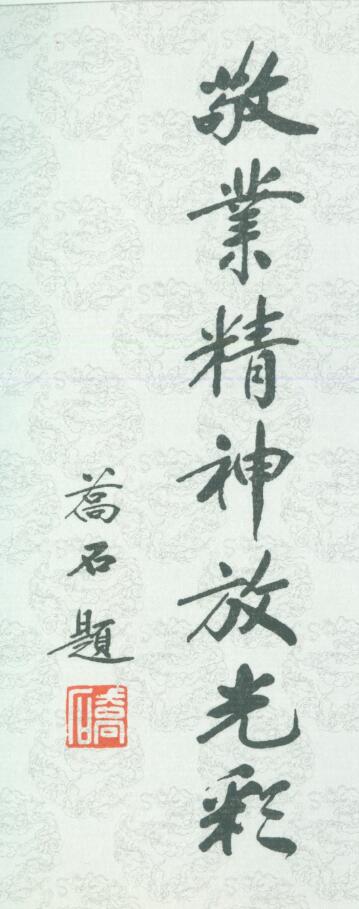 敬業精神放光彩
喬石題
喬石